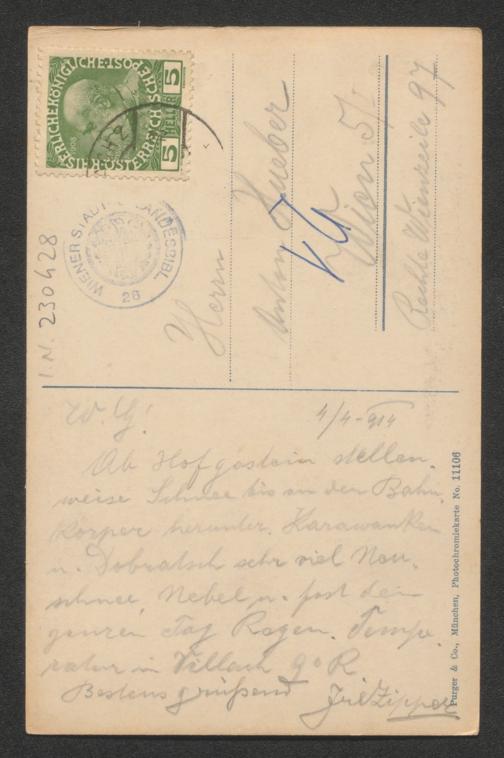 KAISERLICHE KÖNIGLICHE ÖSTERREICHISCHE POST
5 HELLER 5
1908
WIENER STADT- LANDESBIBL.
26
I.N. 230428
Herrn
Anton Hueber
Wien 5/
Rechte Wienzeile 97
W. G!
1/4-914
Ab Hofgastein stellen-
weise Schnee bis an den Bahn-
körper herunter. Karawanken
u. Dobratsch sehr viel Neu-
schnee, Nebel u. fast den
ganzen Tag Regen. Tempe-
ratur in Villach 9° R
Bestens grüßend
Purger & Co., München, Photochromiekarte No. 11106